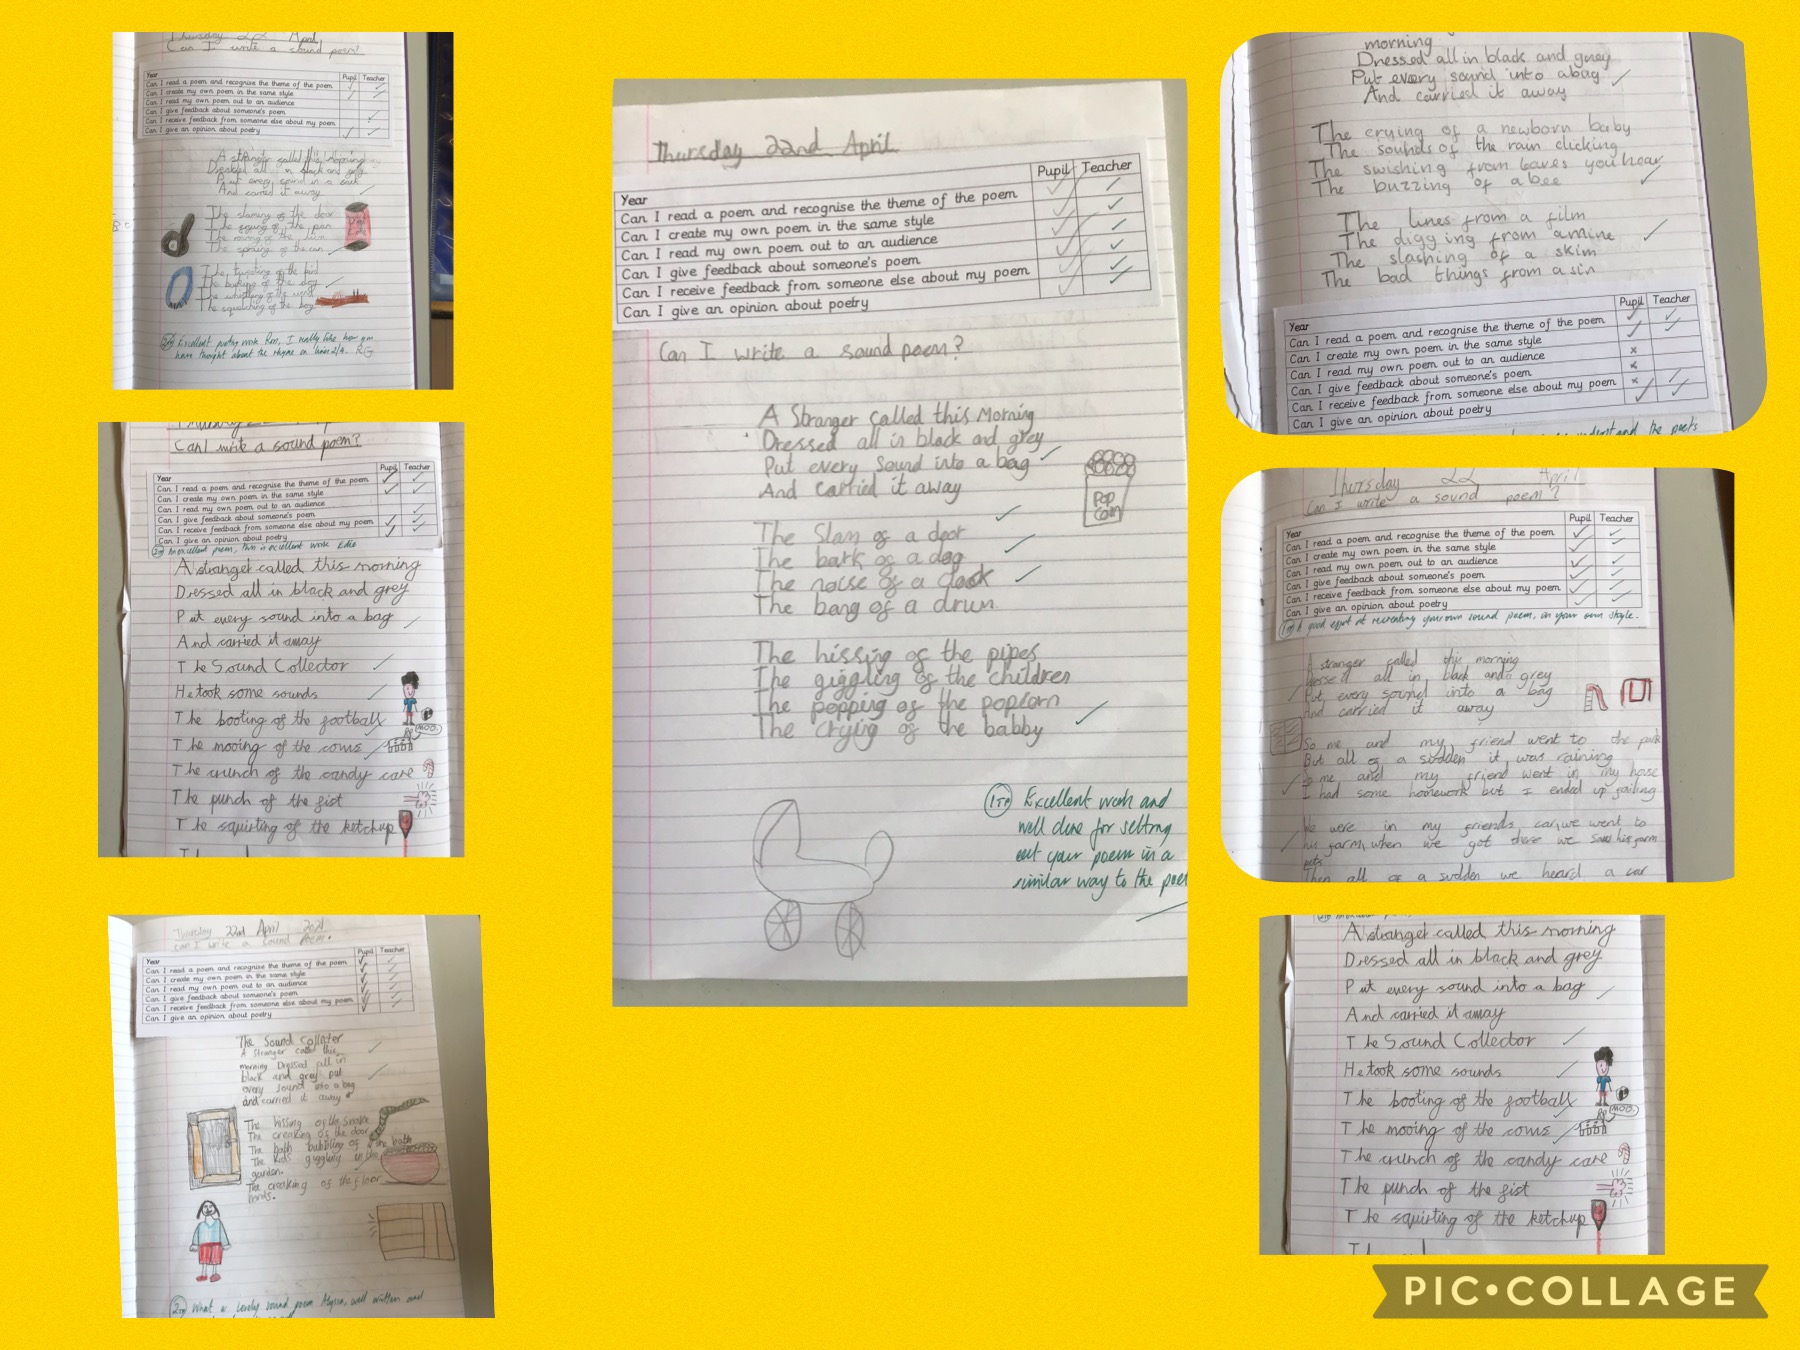 Thursday 22 April
Can I write a sound poem?
Year
Pupil
Teacher
Can I read a poem and recognise the theme of the poem
Can I create my own poem in the same style
Can I read my own poem out to an audience
Can I give feedback about someone's poem
Can I receive feedback from someone else about my poem
Can I give an opinion about poetry
A stranger called this morning
Dressed all in black and grey
Put every sound in a
And carried it away
The slaming of the door
The of the pan
The of the
The of the can
The of the bird
The barking of the dog
The whistling of the wind
The squelching of the
Excellent poetry work I really like how you
have thought about the rhyme in lines 2/4. RG
Can I write a sound poem?
Year
Pupil
Teacher
Can I read a poem and recognise the theme of the poem
Can I create my own poem in the same style
Can I read my own poem out to an audience
Can I give feedback about someone's poem
Can I receive feedback from someone else about my poem
Can I give an opinion about poetry
An excellent poem, this is excellent work Edie
A stranger called this morning
Dressed all in black and grey
Put every sound into a bag
And carried it away
The Sound Collector
He took some sounds
The booting of the football
The mooing of the cows
MOO.
The crunch of the candy cane
The punch of the fist
The squirting of the ketchup
Thursday 22nd April 2021
can I write a sound poem.
Year
Pupil
Teacher
Can I read a poem and recognise the theme of the poem
Can I create my own poem in the same style
Can I read my own poem out to an audience
Can I give feedback about someone's poem
Can I receive feedback from someone else about my poem
Can I give an opinion about poetry
The Sound Colloter
A stranger called this
morning Dressed all in
black and grey put
every sound into a bag
and carried it away
The hissing of the snake
The creaking of the door
The bath bubbling of the bath
The kids giggling in the
garden.
The creaking of the floor
bords.
What a lovely sound poem Alyssa, well written and
Thursday 22nd April
Pupil
Teacher
Year
Can I read a poem and recognise the theme of the poem
Can I create my own poem in the same style
Can I read my own poem out to an audience
Can I give feedback about someone's poem
Can I receive feedback from someone else about my poem
Can I give an opinion about poetry
Can I write a sound poem?
A Stranger called this Morning
Dressed all in black and grey
Put every Sound into a bag
And carried it away
Pop
Corn
The Slam of a door
The bark of a dog
The noise of a clock
The bang of a drum
The hissing of the pipes
The giggling of the children
The popping of the popcorn
The crying of the babby
Excellent work and
well done for setting
out your poem in a
similar way to the poem
morning
Dressed all in black and grey
Put every sound into a bag
And carried it away
The crying of a newborn baby
The sounds of the rain clicking
The swishing from leaves you hear
The buzzing of a bee
The lines from a film
The digging from a mine
The slashing of a skim
The bad things from a sin
Pupil
Teacher
Year
Can I read a poem and recognise the theme of the poem
Can I create my own poem in the same style
Can I read my own poem out to an audience
Can I give feedback about someone's poem
Can I receive feedback from someone else about my poem
Can I give an opinion about poetry
understand the poets
Thursday 22 April
Can I write a sound poem?
Year
Pupil
Teacher
Can I read a poem and recognise the theme of the poem
Can I create my own poem in the same style
Can I read my own poem out to an audience
Can I give feedback about someone's poem
Can I receive feedback from someone else about my poem
Can I give an opinion about poetry
A good effort at recreating your own sound poem, in your own style.
A stranger called this morning
Dressed all in black and grey
Put every sound into a bag
And carried it away
So me and my friend went to the park
But all of a sudden it was raining
So me and my friend went in my house
I had some homework but I ended up failing
We were in my friends car, we went to
his farm, when we got there we saw his farm
pets.
Then all of a sudden we heard a car
A stranger called this morning
Dressed all in black and grey
Put every sound into a bag
And carried it away
The Sound Collector
He took some sounds
The booting of the football
The mooing of the cows
MOO.
The crunch of the candy cane
The punch of the fist
The squirting of the ketchup
PIC•COLLAGE